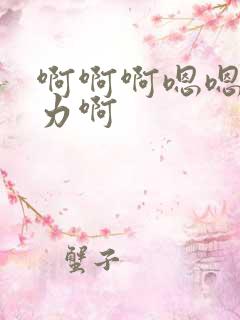 啊啊啊嗯嗯
力啊
蟹子